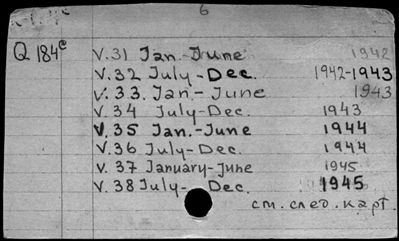 6
Q 184c V.31 Jan.-June 1942
V.32 July-Dec. 1942-1943
V.33. Jan.- June 1943
V.34 July-Dec. 1943
V.35 Jan.-June 1944
V.36 July-Dec. 1944
V.37 January-June 1945
V.38 July- Dec. 1945
см. след. карт.